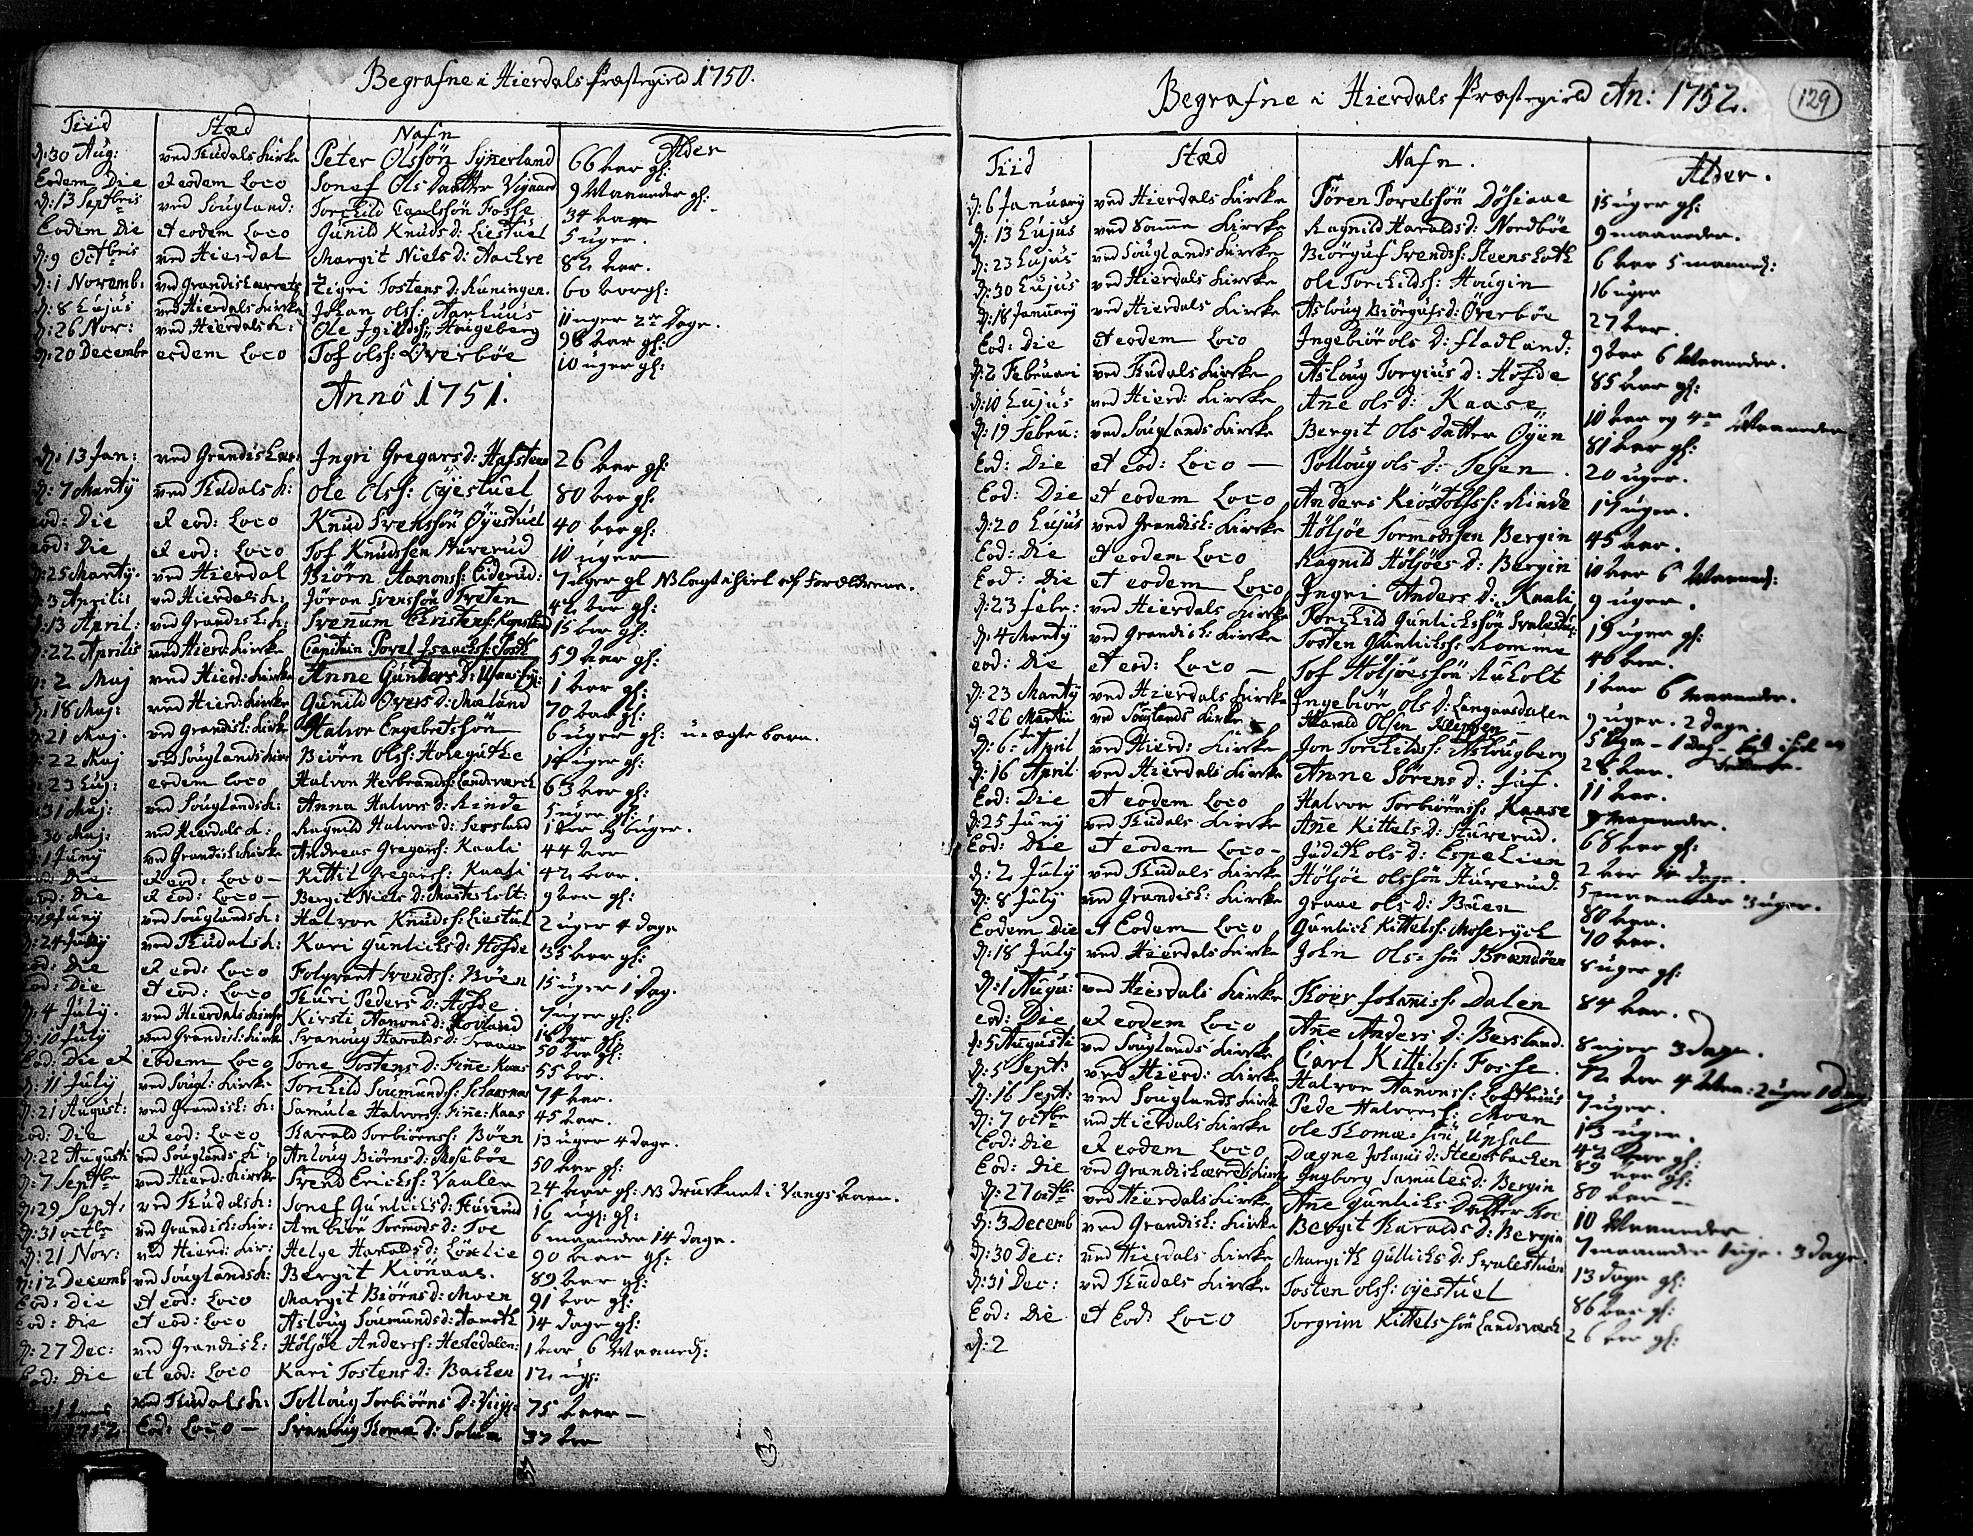 Begrafne i Hierdals Præstegield 1750.
Tiid Stæd Nafn Alder
d: 30 Aug: ved Tudals Kirke Peter Olssön Synerland 66 aar gl:
Eodem Die et eodem Loco Sonef Ols Daatter 9 Maaneder gl:
d: 13 Septbris ved Sougland: Torchild Fosse 34 aar
Eodem Die et eodem Loco Gunild Knuds d: Liestuel 5 uger.
d: 9 Octbris ved Hierdal Margit Niels d: Aackre 82 aar.
d: 1 Novemb: ved Grandisherrets Zigri Tostens d: Kuningen. 60 aar gl:
d: 8 Eujus ved Hierdals Kirke Johan olss: Aarhuus 11 uger 2 Dage.
d: 26 Nov: ved Hierdals K: Ole Haugeberg 98 aar gl:
d: 20 Decembr eodem Loco Tof olss: Øverbøe 10 uger gl:
Anno 1751.
d: 13 Jan: ved Grandisher: Ingri Gregars d: 26 aar gl:
d: 7 Martij ved Tudals K: Ole Olss: Øyestuel 80 aar gl:
eod: Die et eod: Loco Knud Svenssön Øyestuel 40 aar gl:
eod: Die et eod: Loco Tof Knudssen Sturerud 10 uger
d: 25 Martij. ved Hierdal Biörn Aanonss: Eiderud: 7 uger gl NB lagt ihiel af Forældrene.
d: 3 Aprili: ved Hierdals K: Jöron Svenssön Tveten 42 aar gl:
d: 13 April: ved Grandish: K: Svenum Christenss: 15 aar gl:
d: 22 Aprilis ved Hierd: Kirke Capitain Povel Isaachss: 59 aar gl:
d: 2 Maj ved Hierd: Kirke Anne Gunders d: 1 aar gl:
d: 18 Maj: ved Hierd: Kirke Gunild Overs d: Mæland 70 aar gl:
d: 21 Maj. ved Grandish: Kirke Halvor Engebretssön 6 uger gl: u-ægte barn.
d: 22 Maj ved Souglands Kirke Biörn Olss: 14 uger gl:
d: 23 Euj: eodem Loco Halvor Herbrandss: Landsværck 63 aar gl:
d: 31 Maj: ved Souglands K: Anna Halvors d: Kinde 5 uger gl:
d: 30 Maj: ved Hierdals K: Ragnild Halvors d: 1 aar og 6 uger.
d: 1 Junij ved Grandish Kirke Andreas Gregarss: Kaali 44 aar
eod: Die et eod: Loco – Kittil Gregarss: Kaasi 42 aar.
eod: Die et Eod: Loco – Bergit Niels d: 9 aar gl:
d: 19 Juny ved Souglands K: Halvor Knudss: Liestuel 2 uger 4 dage
d: 24 July ved Tudals K: Kari Gunlichs d: Hofde 35 aar gl:
eod: Die et eod: Loco Folqvart Svendss: Bøen 15 uger 1 dag.
eod: Die et eod: Loco Turi Peders d: Hofde 7 uger gl:
d: 4 July. ved Hierdals Kirke Kirsti Aanons d: Hovland 18 aar gl:
d: 10 July ved Grandish: Kirke Svanoug Haralds d: 50 aar gl:
Eod: Die et eodem Loco Tone Tostens d: Finne: Kaas 55 aar.
d: 11 July ved Sougl: Kirke Torchild Soumundss: 74 aar.
d: 21 August: ved Grandish: K: Samule Halvors: Finne: Kaas 45 aar.
eod: Die et eod: Loco Harald Torbiörnss: Bøen 13 uger 4 dage.
d: 22 Augusti ved Souglands K: Aaslaug Biörns d: Mosebøe 50 aar gl:
d: 7 Septbr ved Hierd: Kirke Svend Ericks: Vaalen 24 aar gl: NB Drucknet i Vangs Aaen.
d: 29 Sept: ved Tudals K: Sonef Gunlichs d: Sturerud 16 ug: gl:
d: 31 octbr ved Grandish: Kir: Ambiör Tormods d: Toe 6 maaneder 14 dage.
d: 21 Nov: ved Hierd: Kir: Helge Haralds d: 90 aar gl:
d: 12 Decemb ved Souglands K: Bergit Kiönaas. 89 aar gl:
Eod: Die et eod: Loco Margit Biörns d: Moen 91 aar gl:
Eod: Die et eod: Loco Aslaug Soumunds d: 14 dage gl:
d: 27 Dec: ved Grandish: Höljöe Anderss: Hestedalen: 1 aar 6 Maaned:
Eod: Die et eod: Loco Kari Tostens d: Backen 12 ug:
ved Tudals K: Tolloug Torbiörns d: 75 aar –
1752 Eod: Loco – Svanoug Thomæ d: Solum 37 aar
Begrafne i Hierdals Præstegield An: 1752.
129
Tiid Stæd Nafn. Alder.
d: 6 January ved Hierdals Kirke Tören Povelssön Dösiaae 15 uger gl:
d: 13 Eujus ved Samme Kirke Ragnild Haralds d: Nordbøe 9 maaneder.
d: 23 Eujus ved Souglands Kirke Biörguf Svendss: 6 aar 5 maaned:
d: 30 Eujus ved Hierdals Kirke ole Torchildss: Haugin 16 uger
d: 18 January ved Hierdals Kirke Aslaug Biörgufs d: Øverbøe 27 aar.
Eod: Die et eodem Loco Ingebiör ols d: Fladland: 9 aar 6 Maaneder.
d: 2 Februari ved Tudals Kirke Aslaug Torgius d: Hofde 85 aar gl:
d: 10 Eujus ved Hierd: Kirke Anne ols d: Kaase 10 aar og 4 Maaneder
d: 19 Febru: ved Souglands Kirke Bergit Ols datter Øyen 81 aar gl:
Eod: Die et Eod: Loco – Tolloug ols d: Tesen. 20 uger.
Eod: Die et eodem Loco Anders Kiöstolfss: Kinde 17 uger.
d: 20 Eujus ved Grandish: Kirke Höljöe Tormodssen Bergin 45 aar.
Eod: Die et eodem Loco Ragnild Höljöes d: Bergin 10 aar 6 Maaned:
Eod: Die et eodem Loco Ingri Anders d: Kaali 9 uger.
d: 23 Febr: ved Hierdals Kirke Torchild Gunlichssön 19 uger gl:
d: 4 Martij ved Grandish: Kirke Tosten Gunlichss: Romme 40 aar.
eod: Die et eod: Loco – Tof Höljöessön Aukolt 1 aar 6 maaneder.
d: 23 Martij ved Hierdals Kirke Ingebiör ols d: Langaasdalen 9 uger. 2 dage
d: 26 Martii ved Souglands Kirke – Harald Olsen
d: 6: April ved Hierd: Kirke Jon Torchildss: Aslougberg 28 aar.
d: 16 April ved Hierdals Kirke Anne Sörens d: Juf. 11 aar.
Eod: Die et eodem Loco Halvor Torbiörnss: Kaase maaneder.
d: 25 Juny ved Tudals Kirke Ane Kittels d: Sturerud. 68 aar gl:
Eod: Die et eodem Loco – Judith ols d: Espelien 2 aar dage.
d: 2 July ved Tudals Kirke Höljöe olssön Sturerud: 5 maaneder 3 uger.
d: 8 July ved Grandish: Kirke Graae ols d: Buen 80 aar.
Eodem Die et Eodem Loco Gunlich Kittelss: Moserych 70 aar.
d: 18 July ved Hierdals Kirke John Ols: sön Brændöen 8 uger gl:
d: 1 Augu: ved Hierdals Kirke Thoer Johannss: Dalen 84 aar.
eod: Die et eodem Loco Ane Anders d: Bersland. 8 uger 3 dage.
d: 5 Augusti ved Souglands Kirke Carl Kittilss: Fosse. 72 aar 4 Maa: 2 uger 1 dag
d: 5 Sept: ved Hierd: Kirke Halvor Aanonss: Lofthuus 7 uger.
d: 16 Sept: ved Souglands Kirke Pede Halvorss: Moen 13 uger.
d: 7 octbr ved Hierdals Kirke ole Thomæ: sön Unsal 42 aar gl:
Eod: Die et eodem Loco Dagne Johans d: 89 aar gl:
Eod: Die ved Grandisherreds Kirke Ingborg Samules d: Bergin 80 aar –
d: 27 octbr ved Hierdals Kirke Ane Gunlichs Datter 10 Maaneder
d: 3 Decemb ved Grandish: Kirke Bergit Haralds d: Bergin 7 maaneder 1 uge. 3 dage
d: 30 Dec: ved Hierdals Kirke Margith Gullichs d: Svalestuen 13 dage gl:
d: 31 Dec: ved Tudals Kirke Tosten olss: Øyestuel 86 aar gl:
Eod: Die et Eod: Loco Torgrim Kittelssön Landsværck 26 aar gl:
d: 2